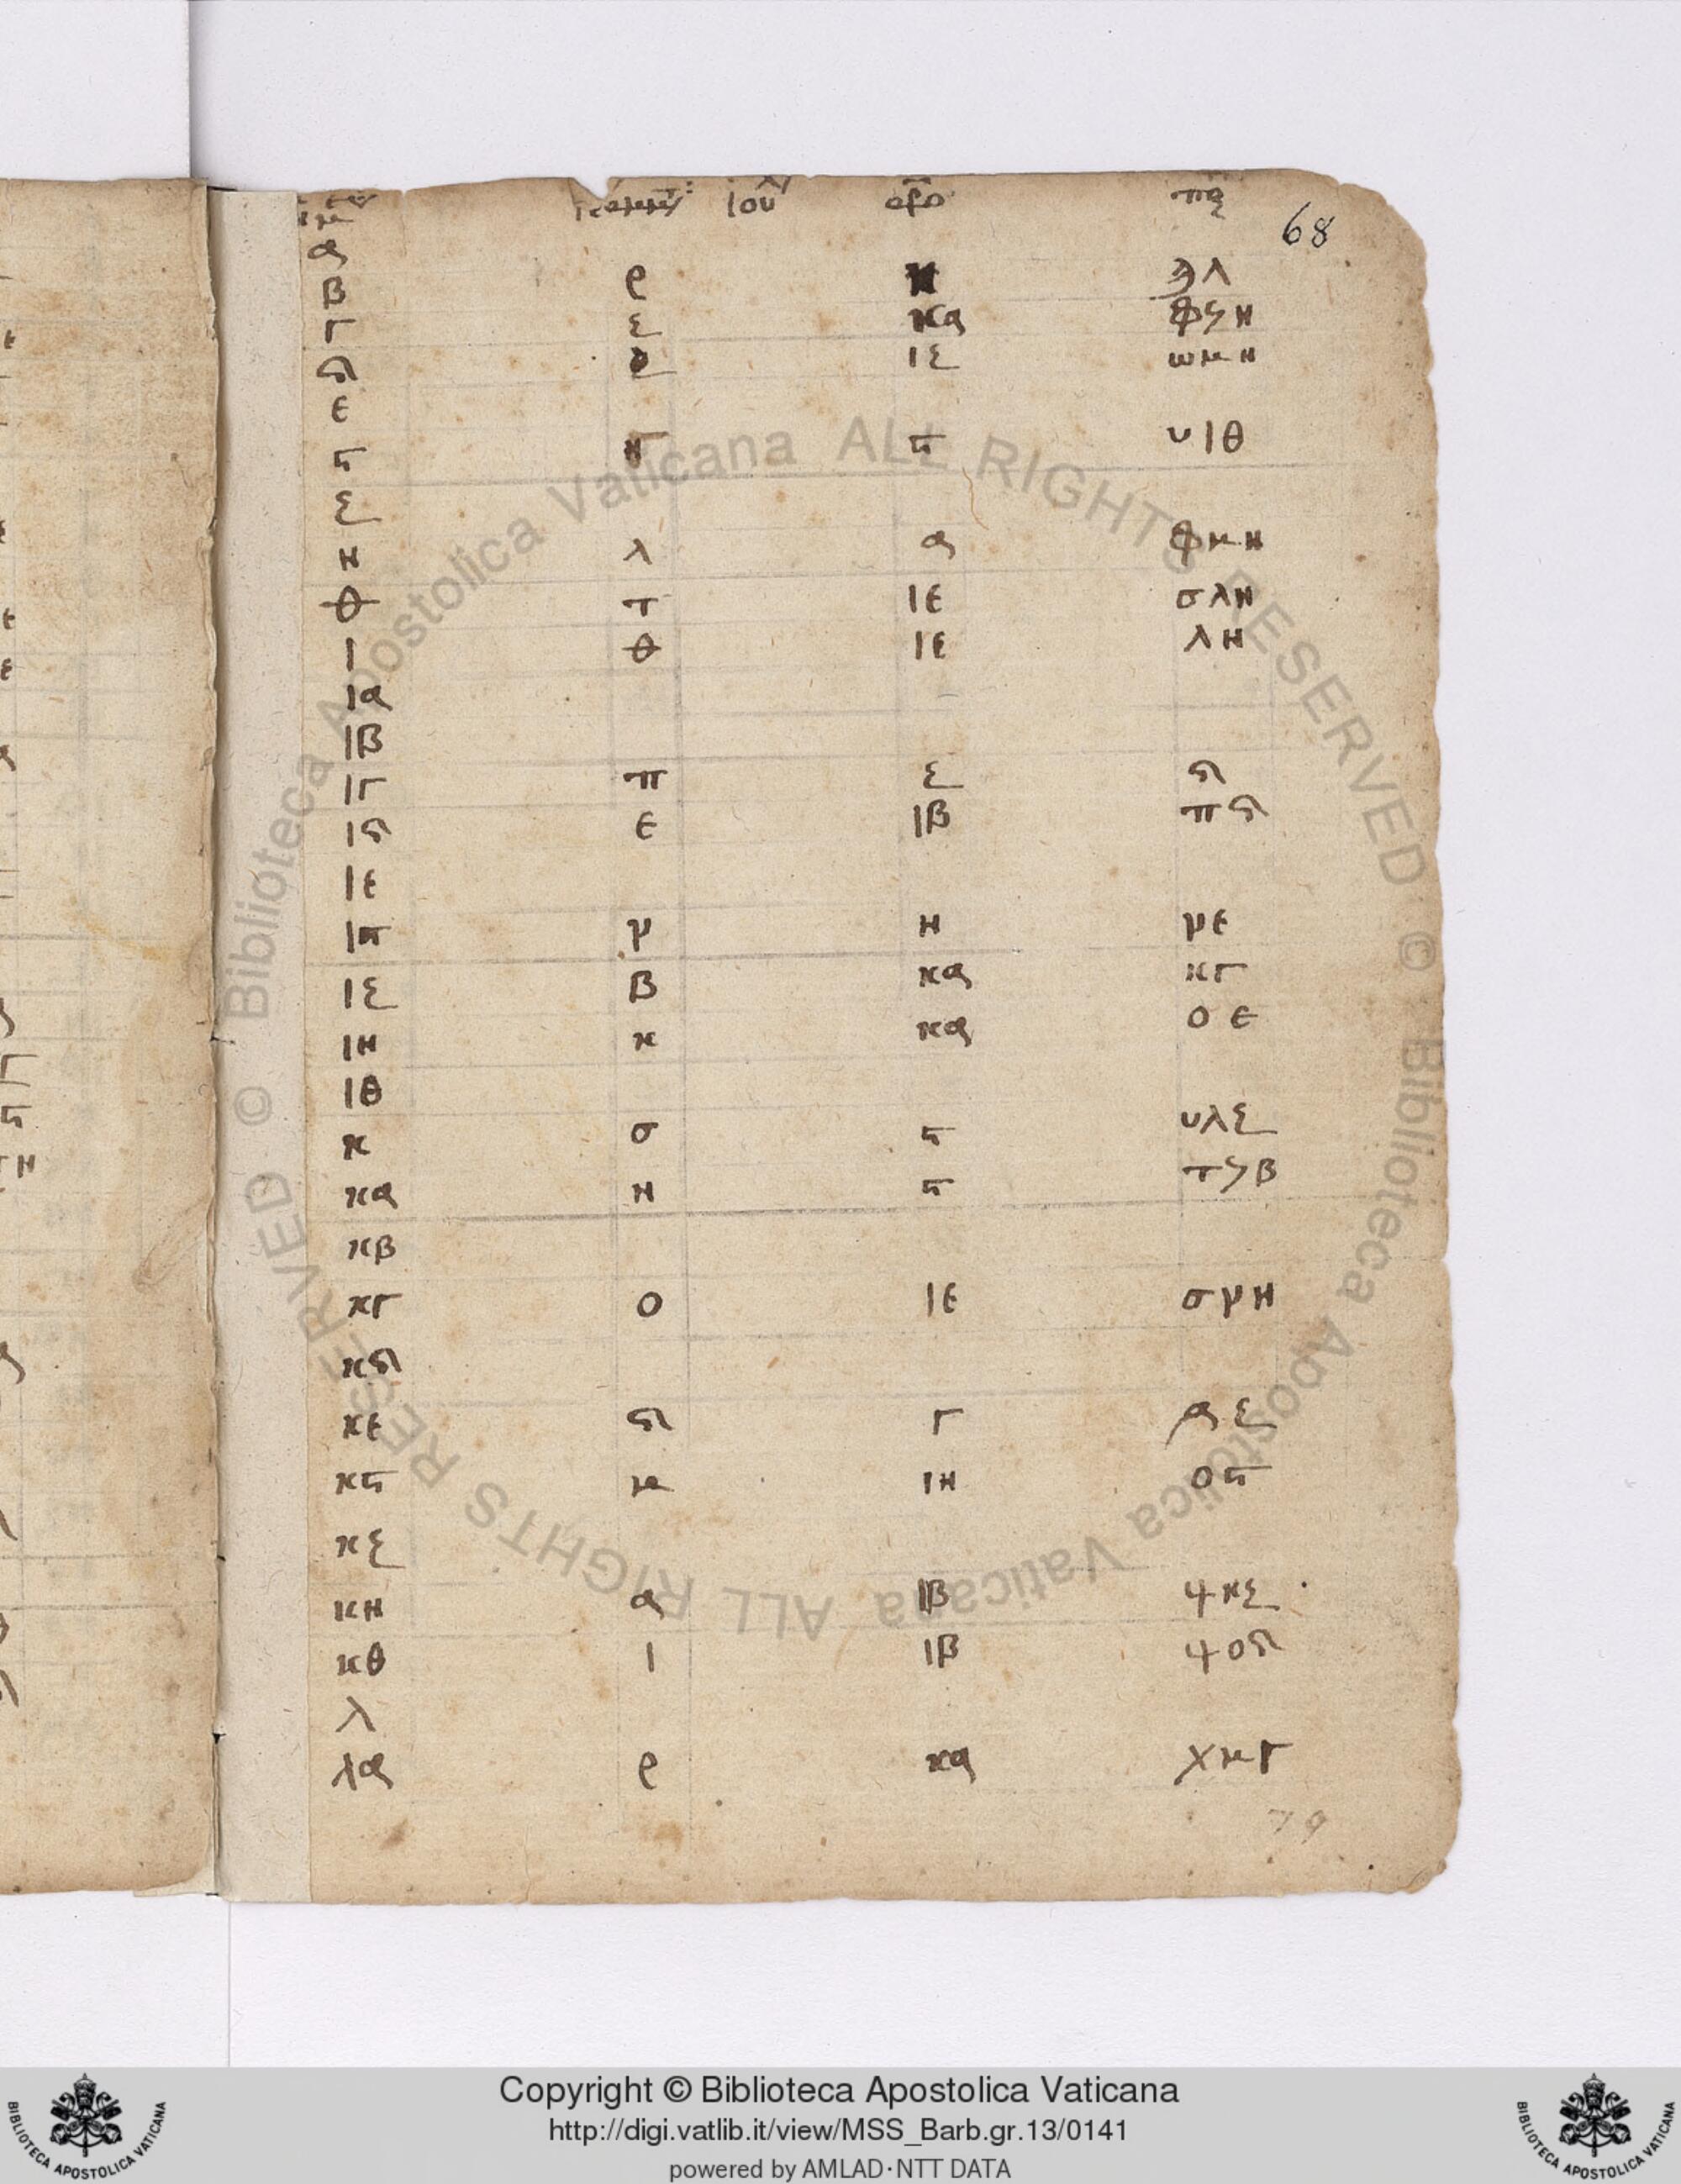 ιου
68
α
β ρ κ ϡλ
γ ξ κα φϟη
δ ιξ ωμη
ε
ϛ η ϛ υιθ
ζ
η λ α φμη
θ τ ιε σλη
ι θ ιε λη
ια
ιβ
ιγ π ξ δ
ιδ ε ιβ πδ
ιε
ιϛ ν η νε
ιζ β κα κγ
ιη κ κα οε
ιθ
κ σ ϛ υλξ
κα η ϛ τϟβ
κβ
κγ ο ιε σνη
κδ
κε δ γ ͵αξ
κϛ μ ιη οϛ
κζ
κη α ιβ ψκξ
κθ ι ιβ ψοδ
λ
λα ρ κα χμγ
79
Biblioteca Apostolica Vaticana ALL RIGHTS RESERVED ©
Biblioteca Apostolica Vaticana ALL RIGHTS RESERVED ©
Copyright © Biblioteca Apostolica Vaticana
http://digi.vatlib.it/view/MSS_Barb.gr.13/0141
powered by AMLAD·NTT DATA
BIBLIOTECA APOSTOLICA VATICANA
BIBLIOTECA APOSTOLICA VATICANA